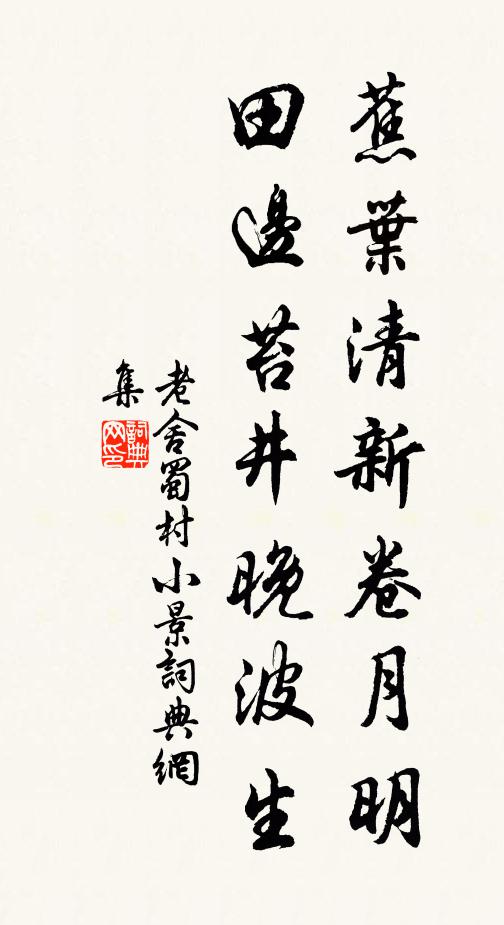 蕉葉清新卷月明
田邊苔井晚波生
老舍蜀村小景詞典網
集
詞典
网印